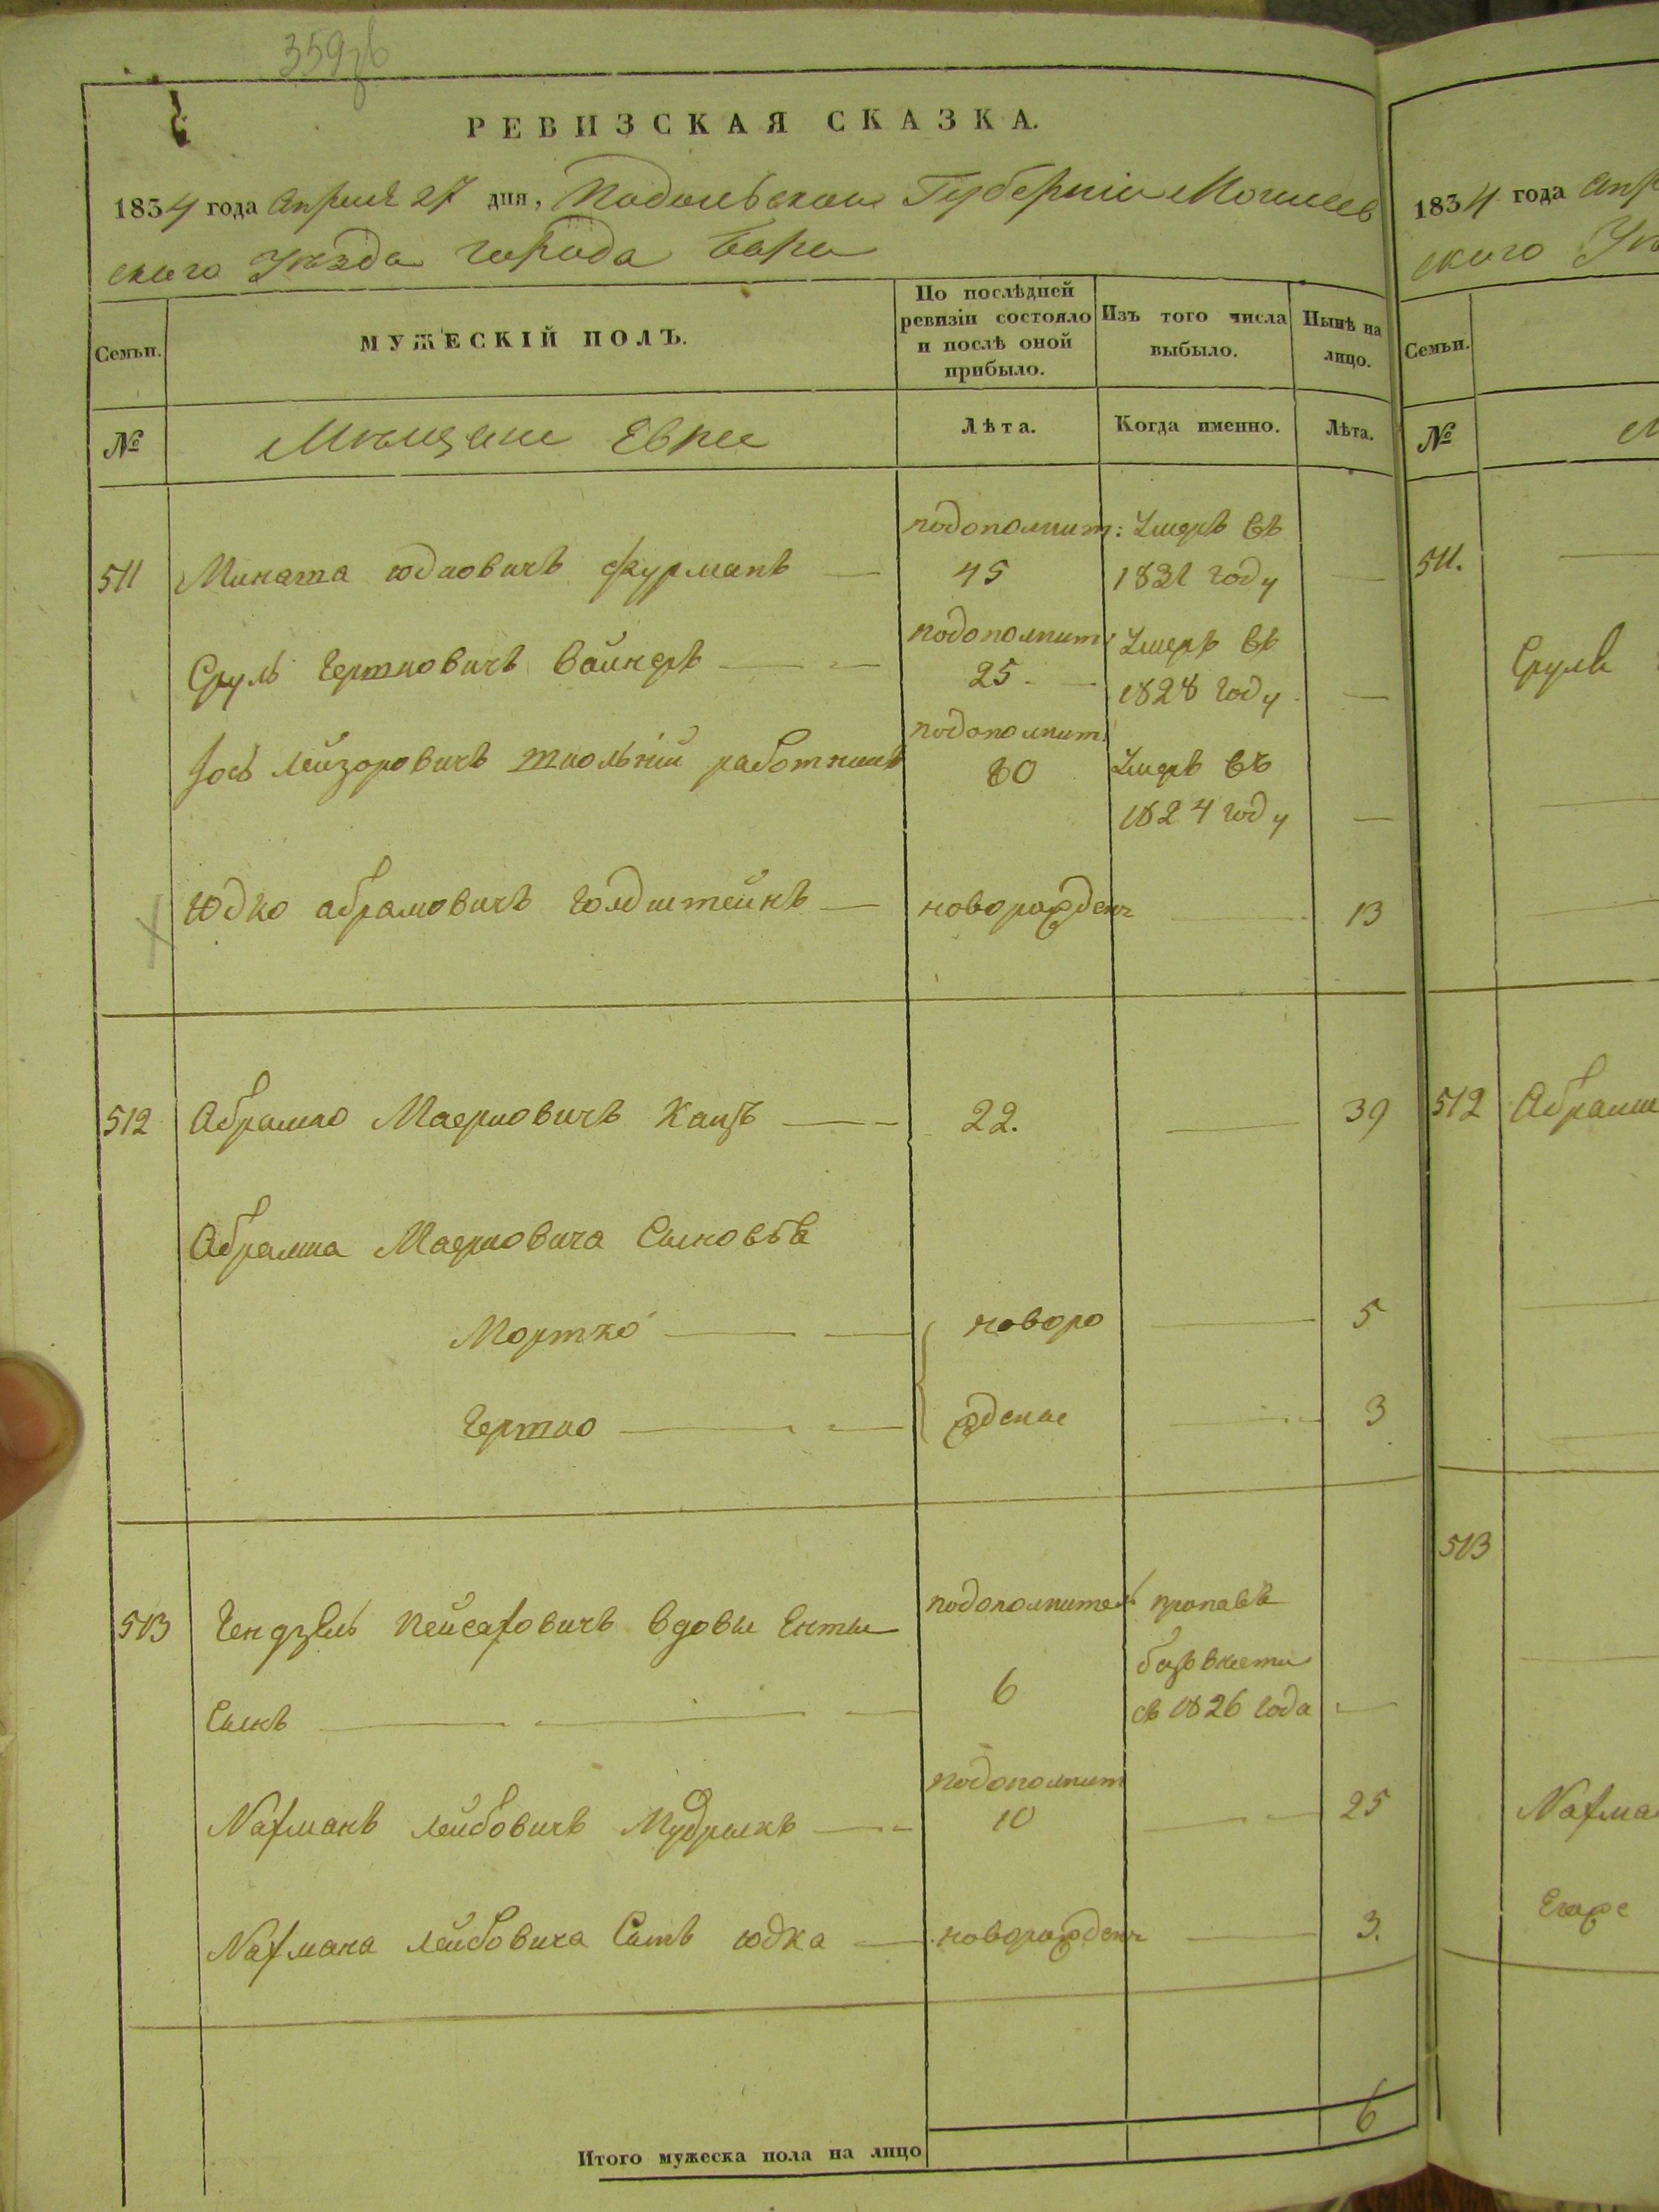 359об
РЕВИЗСКАЯ СКАЗКА.
1834 года Апреля 27 дня, Подольской Губерніи Могилев
ского Уезда города Бара
Семьи.
МУЖЕСКІЙ ПОЛЪ.
По послѣдней ревизіи состояло и послѣ оной прибыло.
Изъ того числа выбыло.
Нынѣ на лицо.
№
Мѣщане Евреи
Лѣта.
Когда именно.
Лѣта.
подополнит: Умеръ въ
511 юдковичъ фурманъ — 45 году —
подополнит: Умеръ въ
Сруль Гершковичъ Вайнеръ — — 25. — 1828 году —
подополнит:
Іось Лейзоровичъ школьній работникъ 80 Умеръ въ
1824 году —
Юдко абрамовичъ голдштейнъ — новорожден — 13
512 Абрамко Маерковичъ Кацъ — — 22. — 39
Абрамка Маерковича Сыновья
Мортко — — новоро — 5
Гершко — — жденые — 3
подополнитель пропавъ
513 Гендзель Пейсаховичъ вдовы Енты
безъ вести
Сынъ — — — 6 съ 1826 года —
подополнит
Nахманъ лейбовичъ Мудрикъ — 10 — 25
Nахмана лейбовича Сынъ юдка — новорожден — 3.
Итого мужеска пола на лицо 6
1834 года Апр
ского Уѣ
Семьи.
№
М
511.
Сруля
512 Абрамк
513
Nахма